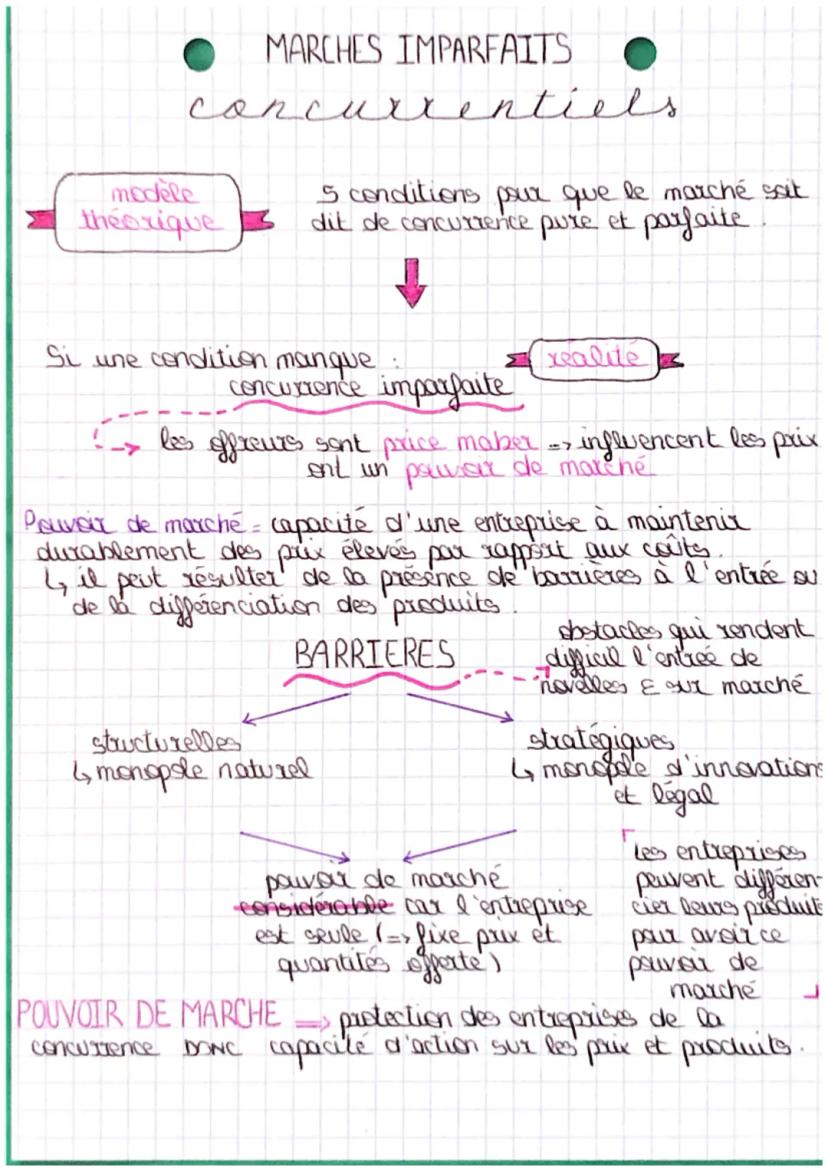 MARCHES IMPARFAITS
concurrentiels
modèle
théorique
5 conditions pour que le marché soit
dit de concurrence pure et parfaite.
Si une condition manque :
concurrence imparfaite
réalité
les offreurs sont price maker => influencent les prix
ont un pouvoir de marché
Pouvoir de marché = capacité d'une entreprise à maintenir
durablement des prix élevés par rapport aux coûts.
↳ il peut résulter de la présence de barrières à l'entrée ou
de la différenciation des produits.
BARRIERES
obstacles qui rendent
difficil l'entrée de
novelles E sur marché
structurelles
↳ monopole naturel
stratégiques
↳ monopole d'innovations
et légal
pouvoir de marché
considérable car l'entreprise
est seule (=> fixe prix et
quantités offerte)
les entreprises
peuvent différen-
cier leurs produits
pour avoir ce
pouvoir de
marché
POUVOIR DE MARCHE => protection des entreprises de la
concurrence DONC capacité d'action sur les prix et produits.